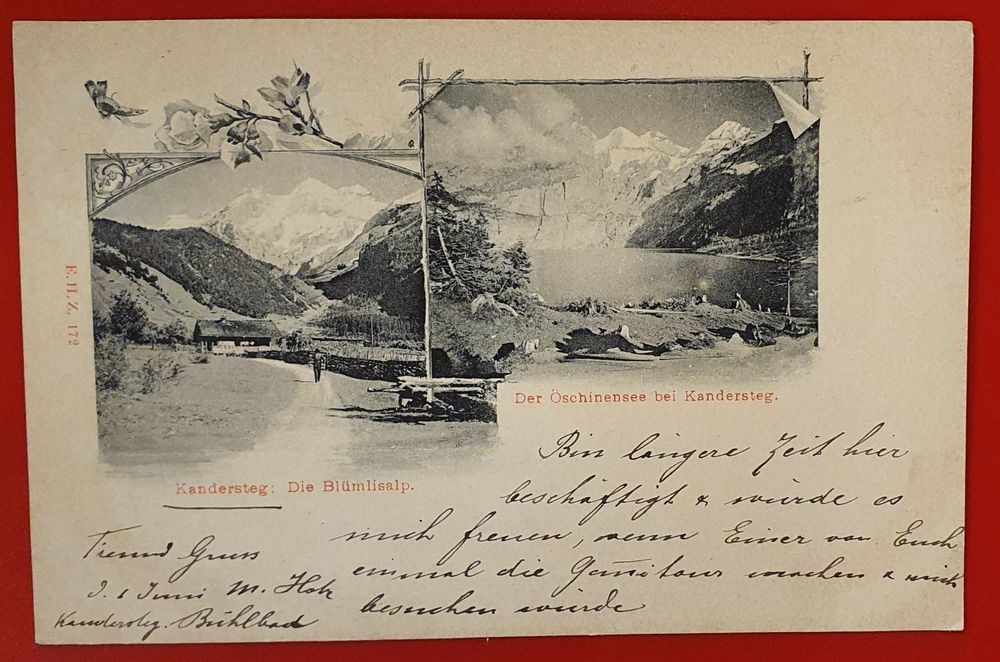 E. H. Z. 172
Der Öschinensee bei Kandersteg.
Kandersteg: Die Blümlisalp.
Bin längere Zeit hier
beschäftigt & würde es
mich freuen, wenn Einer von Euch
einmal die Gemitour machen & mich
besuchen würde
Freund Gruss
Juni M. Hotz
Kandersteg. Bühlbad